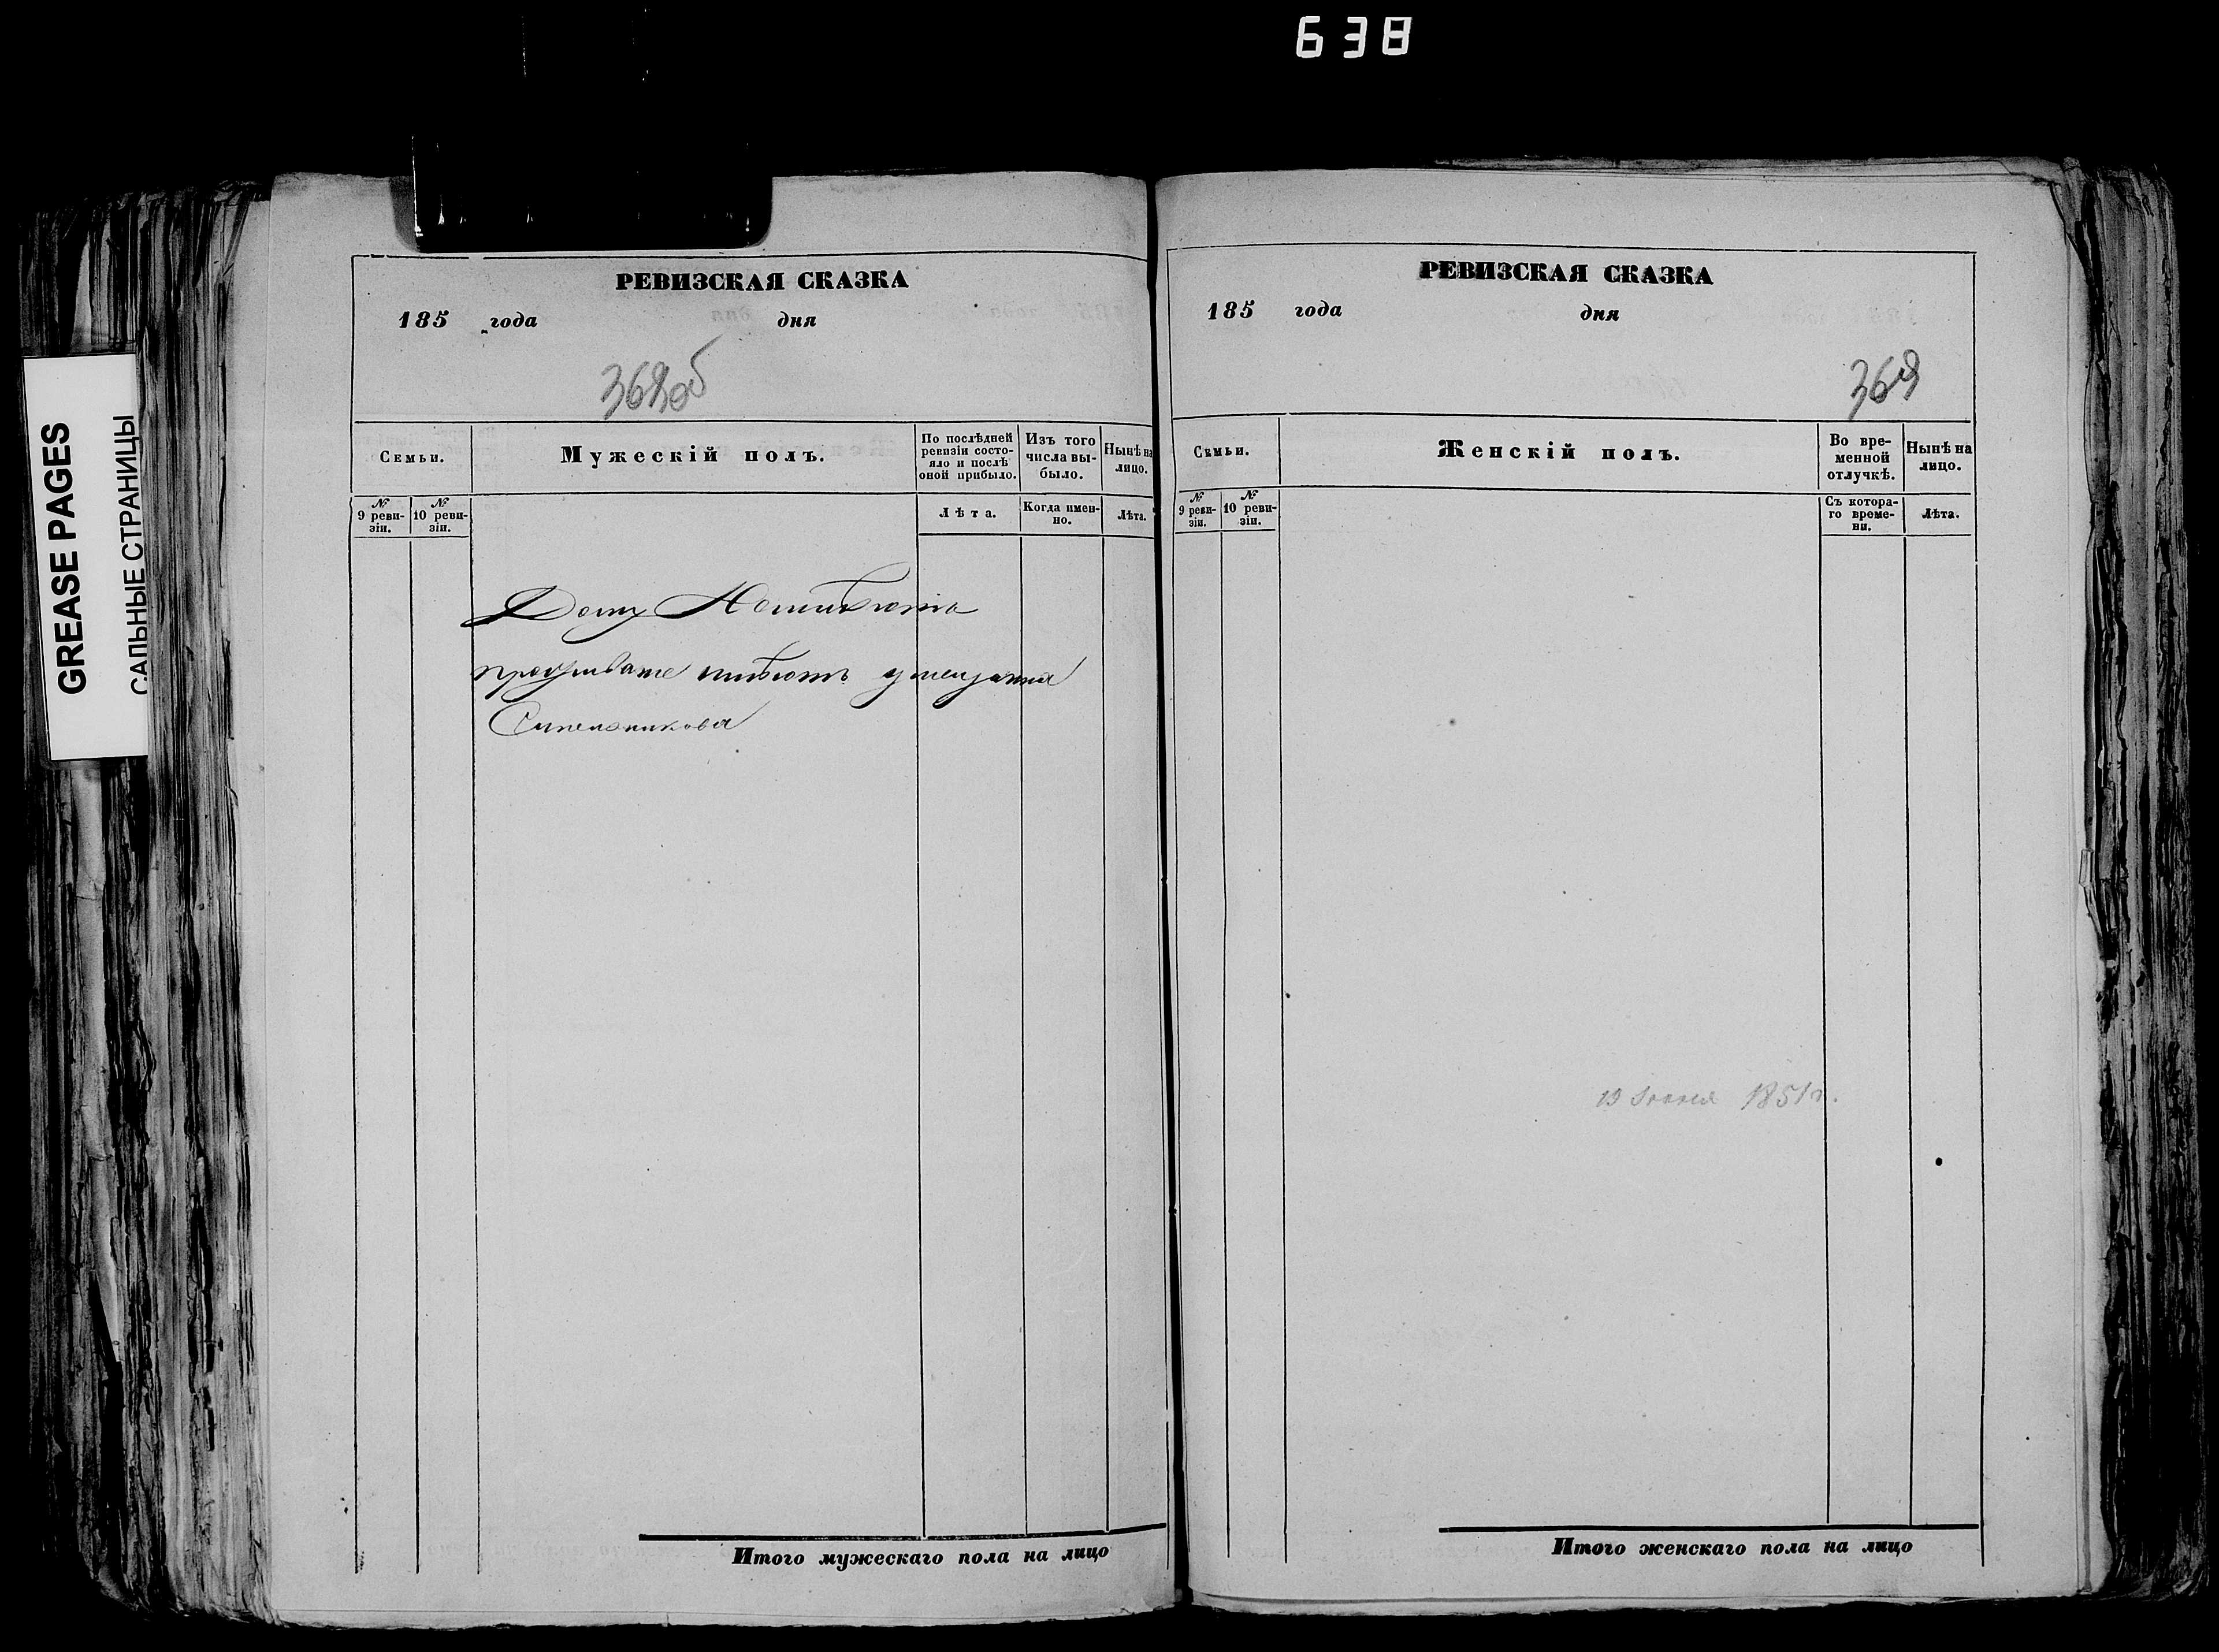 638
GREASE PAGES
САЛЬНЫЕ СТРАНИЦЫ
РЕВИЗСКАЯ СКАЗКА
185 года дня
368об
Семьи.
Мужескій полъ.
По послѣдней ревизіи состо-
яло и послѣ
оной прибыло.
Изъ того
числа вы-
было.
Нынѣ на
лицо.
№
9 реви-
зіи.
№
10 реви-
зіи.
Лѣта.
Когда имен-
но.
Лѣта.
Дому
имѣютъ
Итого мужескаго пола на лицо
РЕВИЗСКАЯ СКАЗКА
185 года дня
369
Семьи.
Женскій полъ.
Во вре-
менной
отлучкѣ.
Нынѣ на
лицо.
№
9 реви-
зіи.
№
10 реви-
зіи.
Съ котора-
го време-
ни.
Лѣта.
1851 г.
Итого женскаго пола на лицо